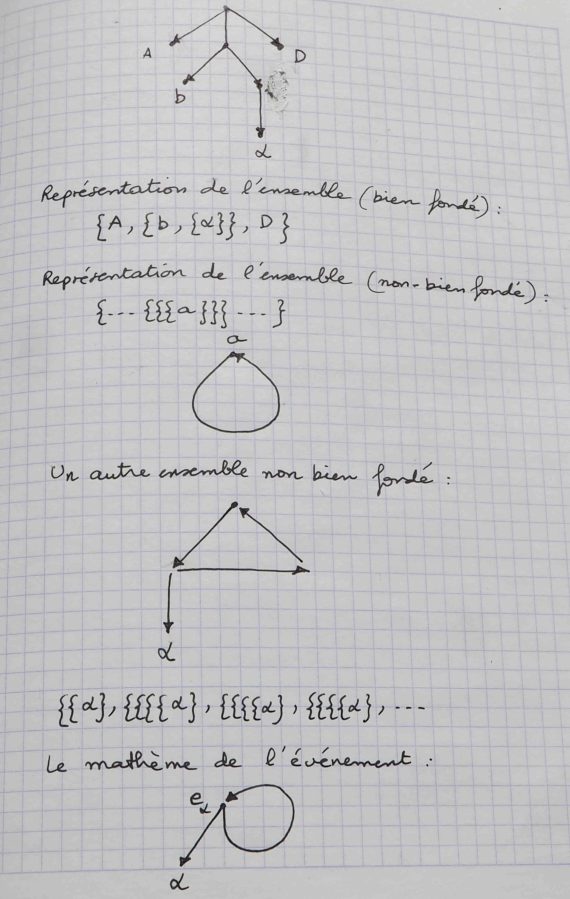 A
D
b
α
Représentation de l'ensemble (bien fondé) :
{A, {b, {α}}, D}
Représentation de l'ensemble (non-bien fondé) :
{--- {{{a}}} --- }
a
Un autre ensemble non bien fondé :
α
{{α}, {{{{α}, {{{{α}, {{{{α}, ---
Le mathème de l'événement :
eα
α